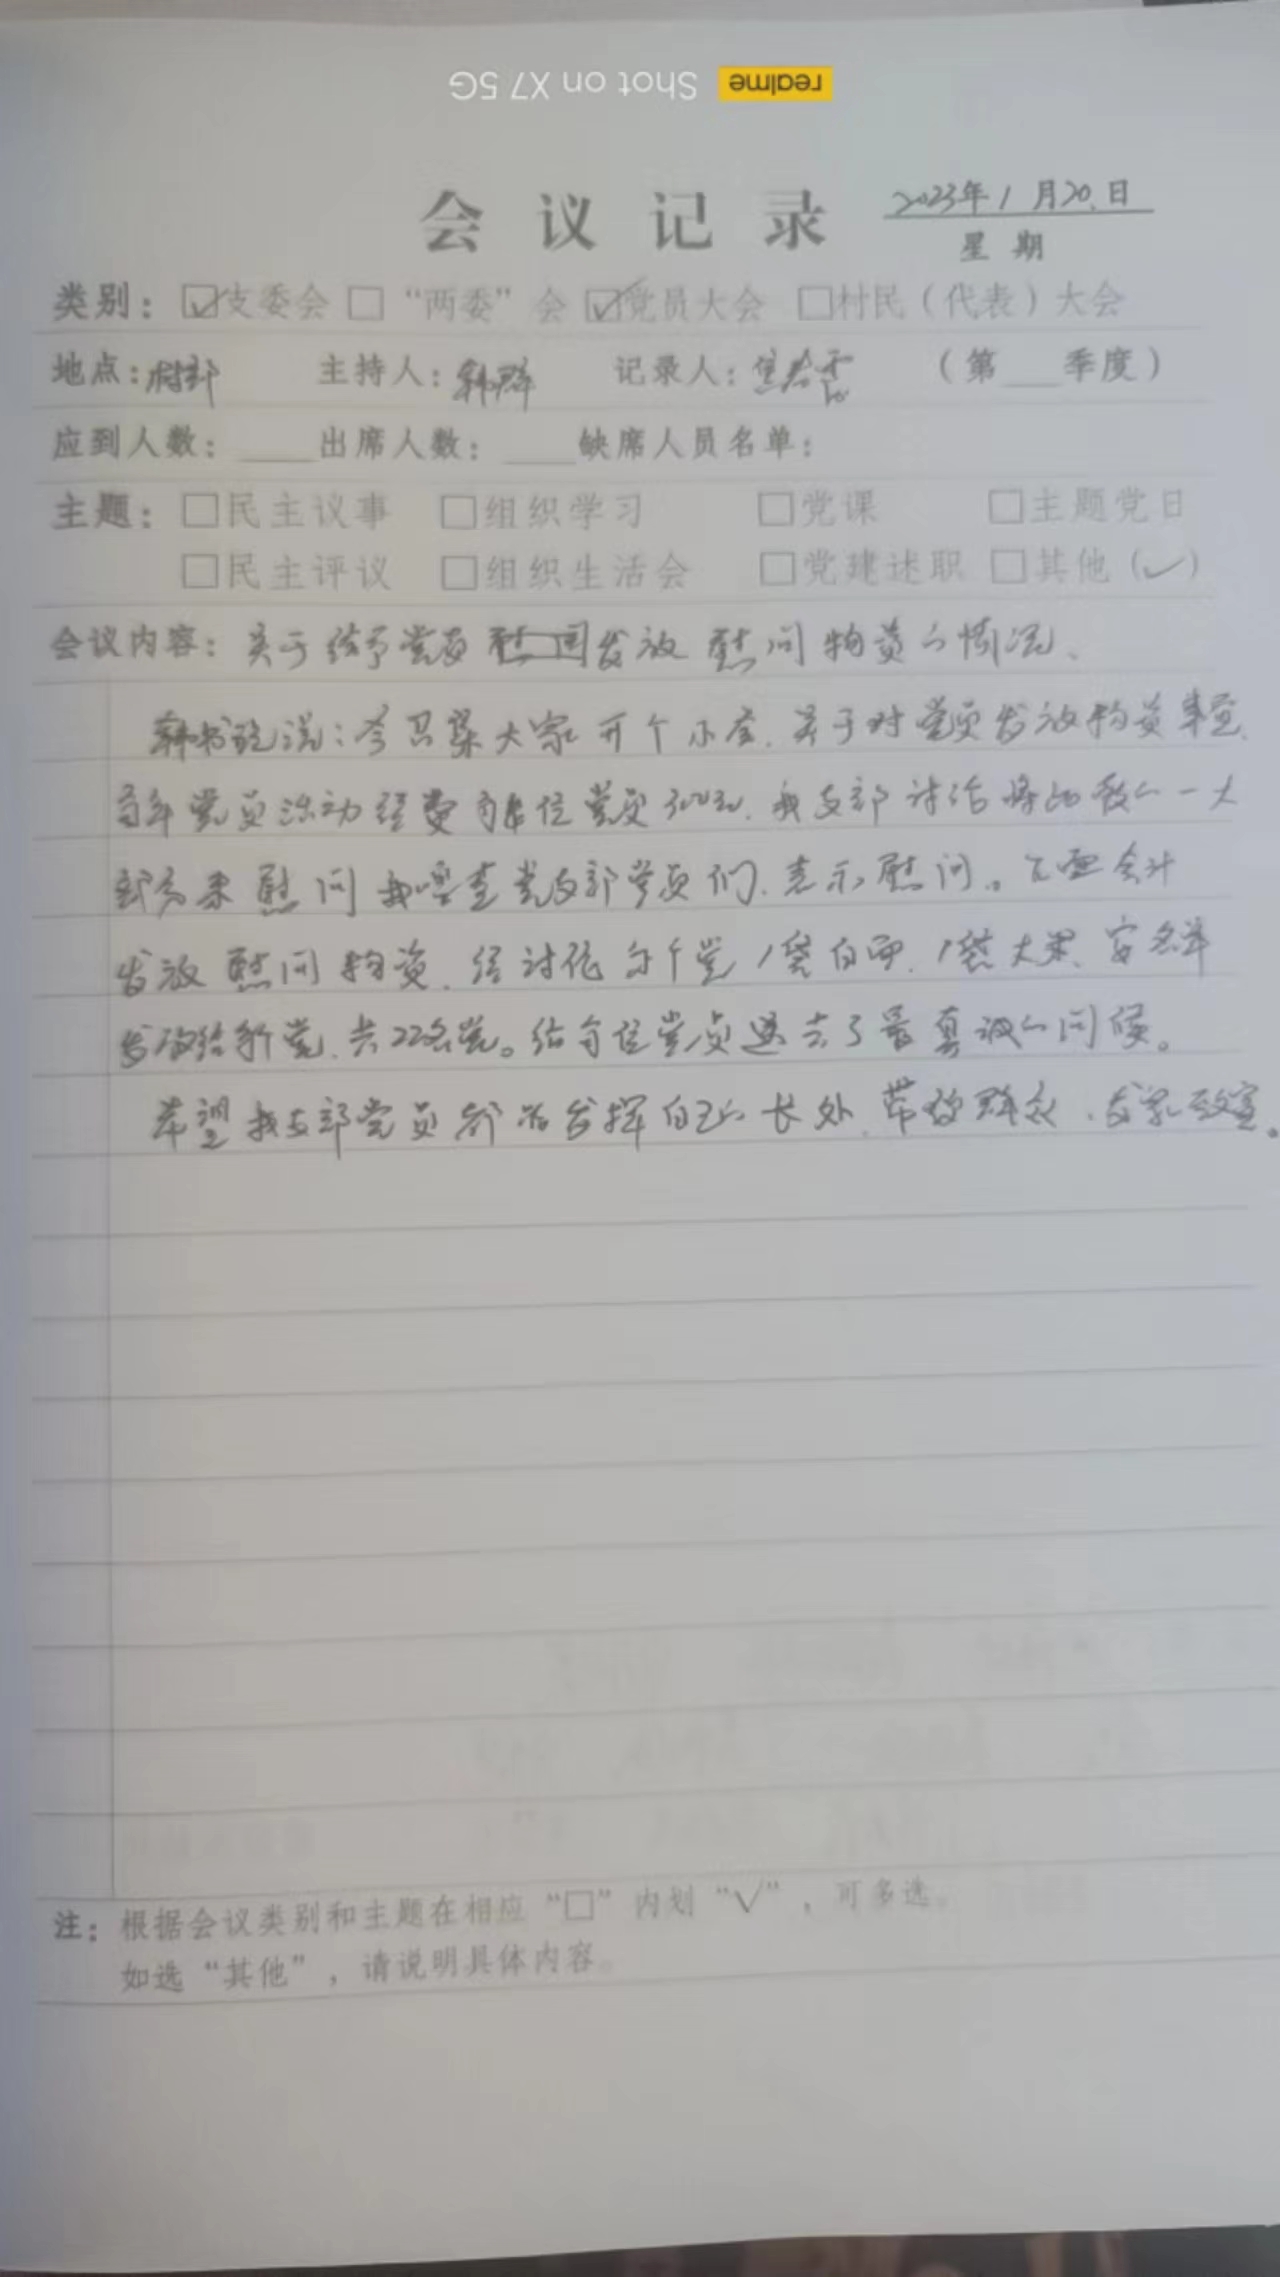 realme Shot on X7 5G
会议记录 2023年1月20日
星期
类别：☑支委会 □“两委”会 ☑党员大会 □村民（代表）大会
地点：村部 主持人：韩群 记录人：焦 （第___季度）
应到人数：____出席人数：____缺席人员名单：
主题：□民主议事 □组织学习 □党课 □主题党日
□民主评议 □组织生活会 □党建述职 □其他（✓）
会议内容：关于给予党员发放慰问物资的情况、
韩书记说：今召集大家开个小会，关于对党员发放物资事宜，
每年党员活动经费每位党员300元，我支部讨论将的一大
部分来慰问我党支部党员们，表示慰问。会计
发放慰问物资，经讨论每个党1袋白面，1袋大米，
发放给新党，共22名党。给每位党员送去了最真诚的问候。
希望我支部党员都发挥自己的长处，带领群众，发家致富。
注：根据会议类别和主题在相应“□”内划“√”，可多选。
如选“其他”，请说明具体内容。